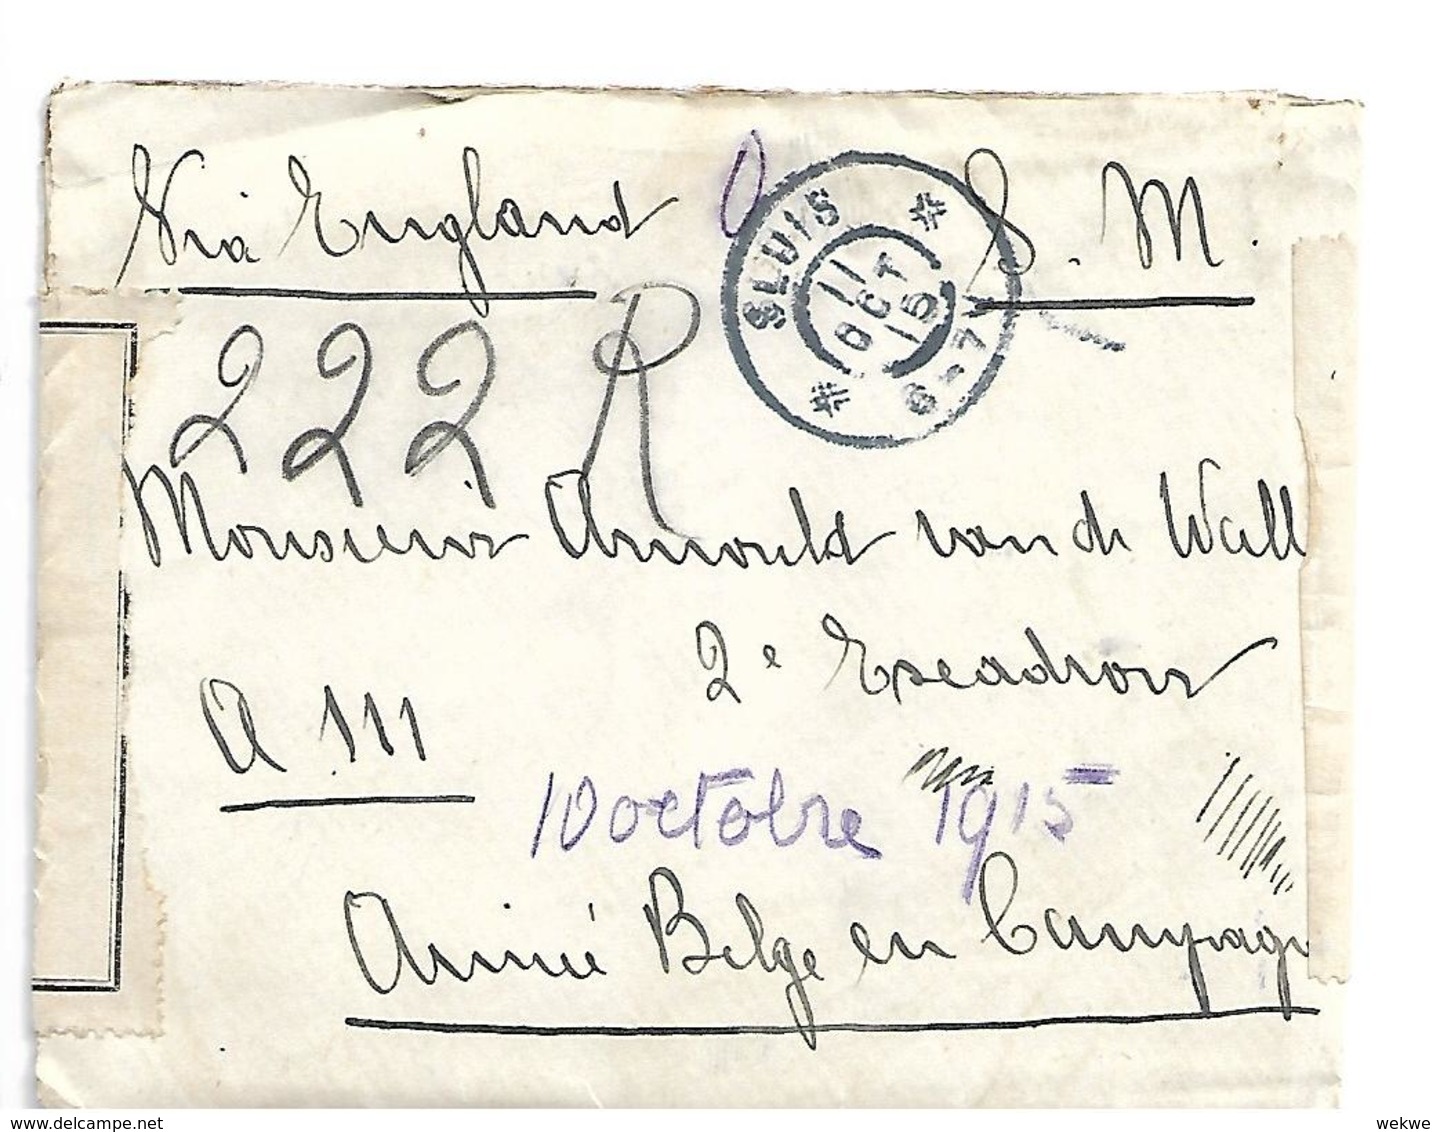 Via England S. M.
SLUIS
11
OCT
15
6-7V
222 R
Monsieur Arnould van de Wall
2e Escadron
A 111
10 octobre 1915
Armée Belge en Campagn
wekwe